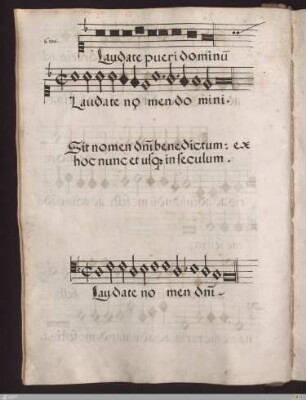 6 toni.
Laudate pueri dominũ
Laudate no men do mini.
Sit nomen dñi benedictum: ex
hoc nunc et usq in seculum.
Laudate no men dñi.